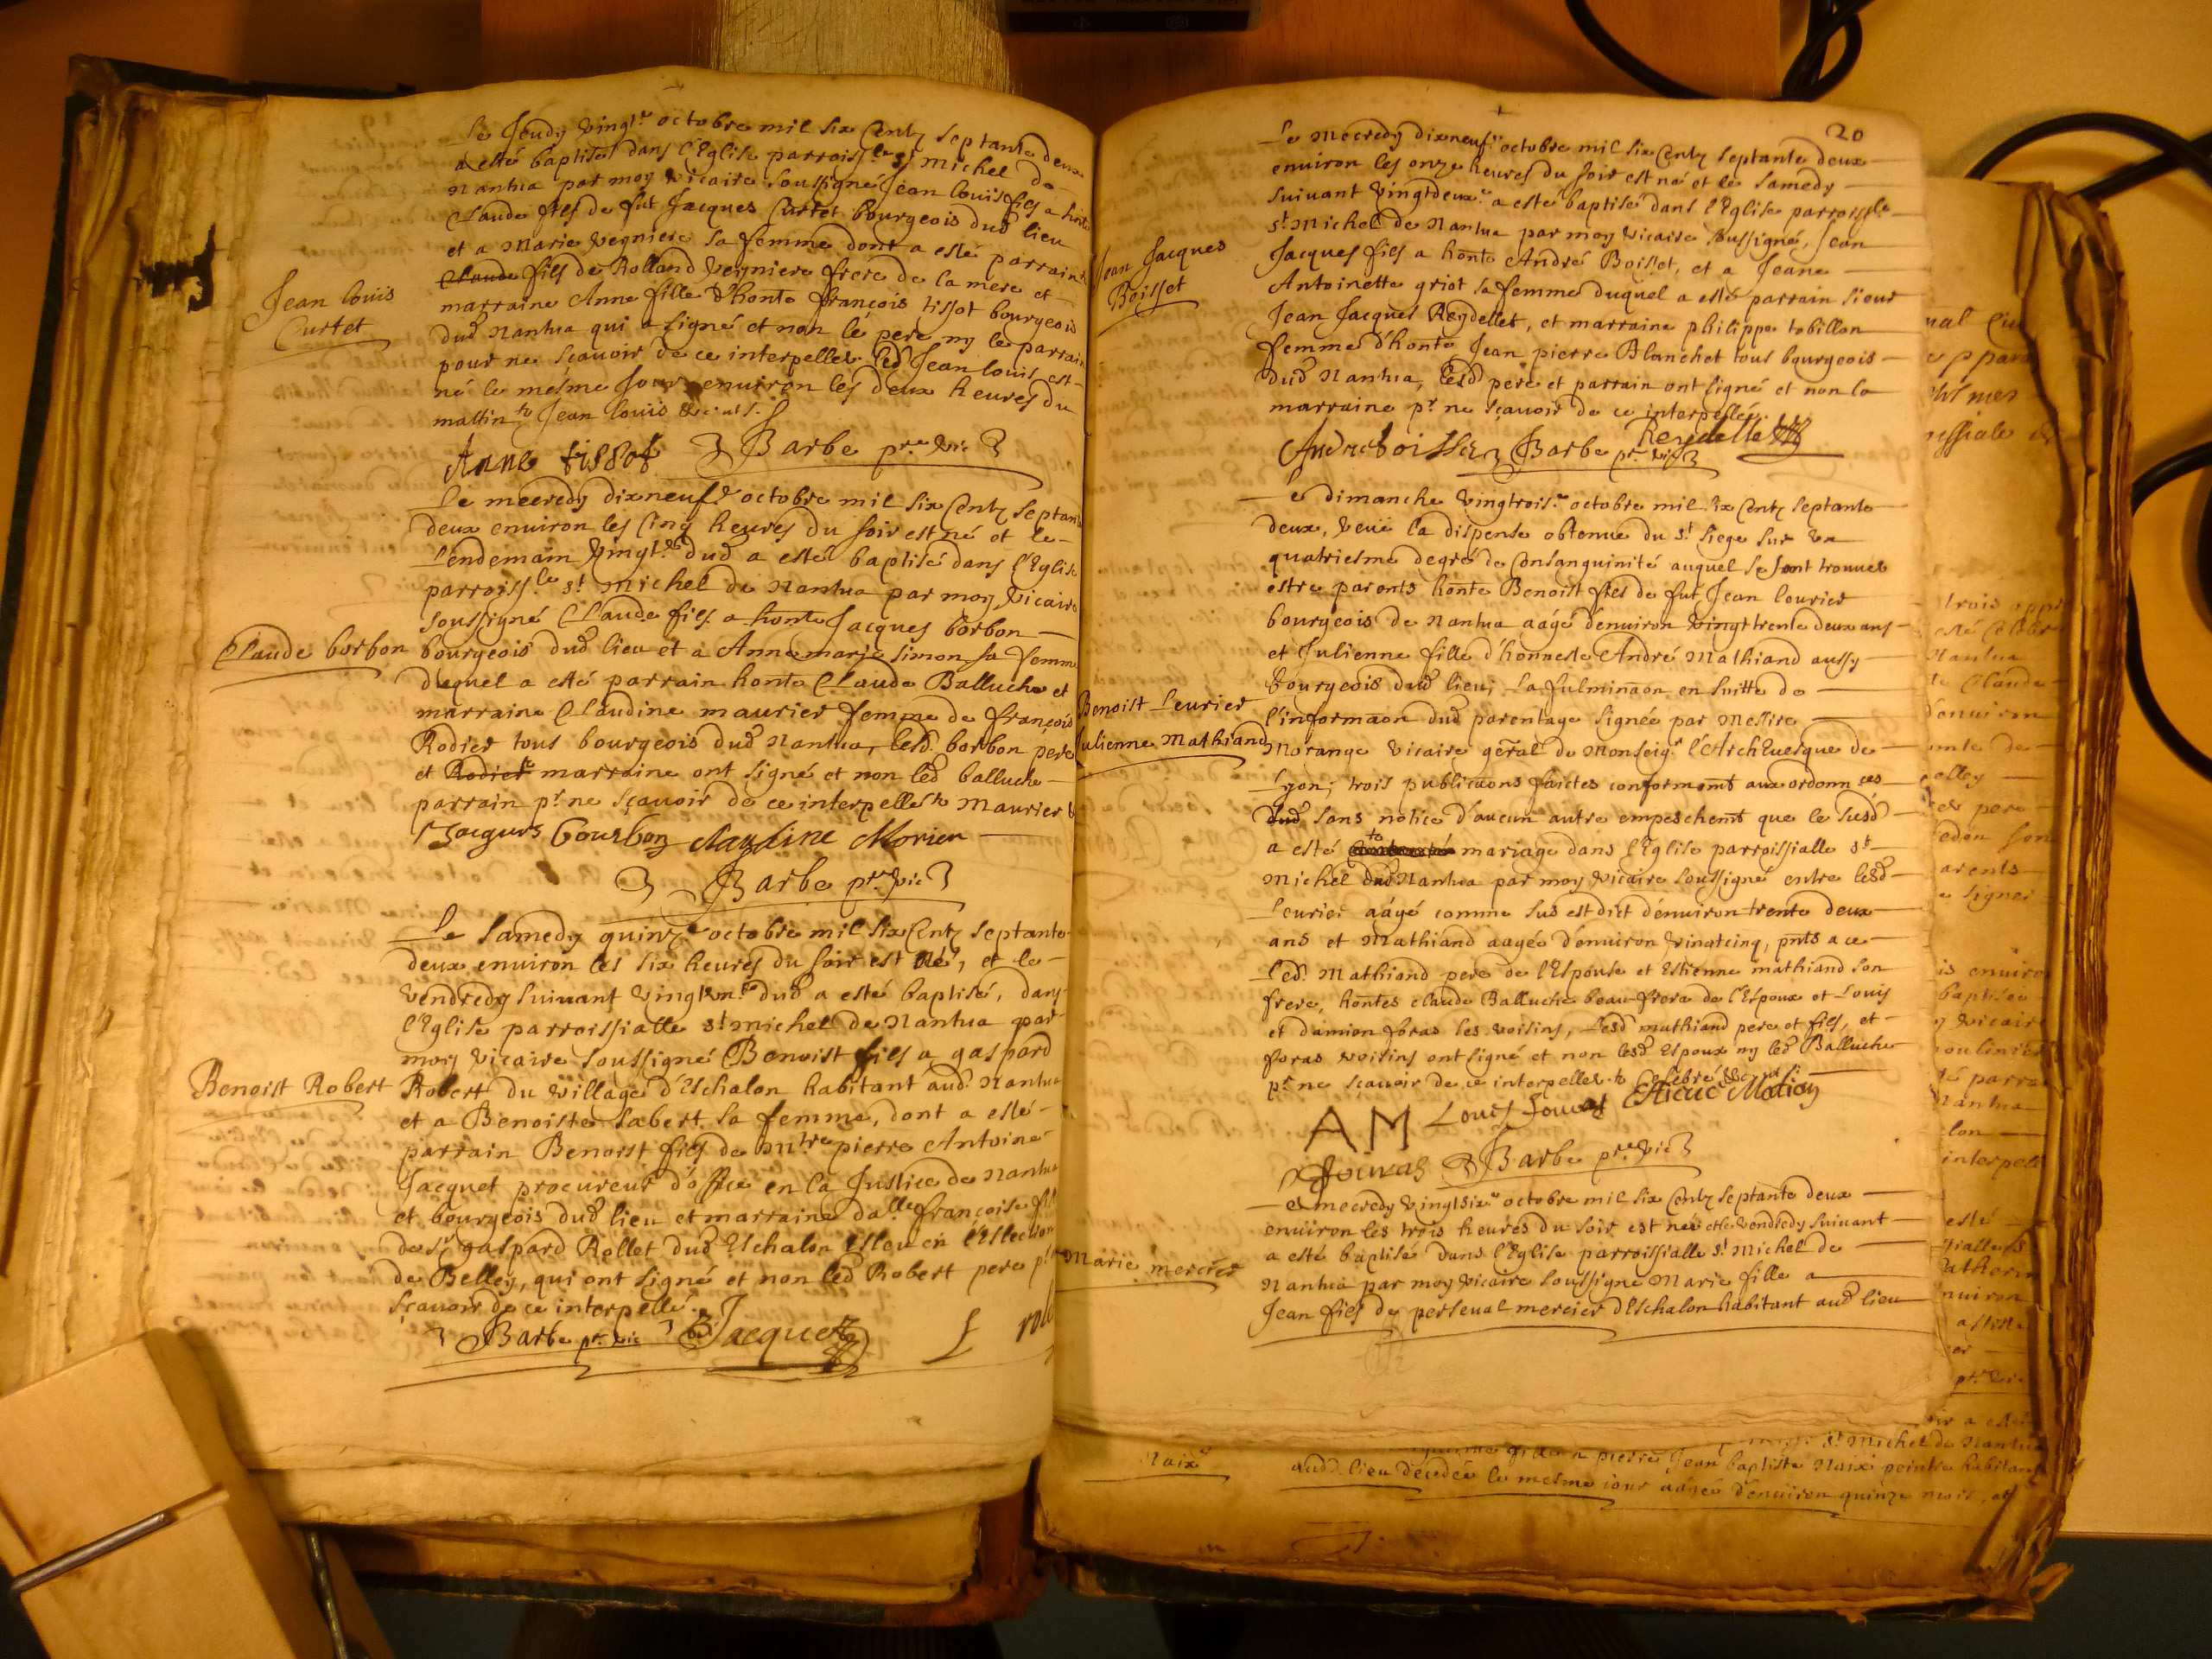 Le Jeudy vingt.e octobre mil six Centz septante deux
a esté baptisé dans l'Eglise parroiss.le st Michel de
Nantua par moy vicaire soussigné Jean louis fils a honte
Claude fils de fut Jacques Curtet bourgeois dud lieu
et a Marie vegniere sa femme dont a esté parrain
Claude fils de Rolland vegniere frere de la mere et
marraine Anne fille d'honte françois tissot bourgeois
Jean louis
Curtet
dud Nantua qui a signé et non le pere ny le parrain
pour ne sçavoir de ce interpellez led Jean louis est
né le mesme Jour environ les deux heures du
mattin Jean louis
Anne tissot Barbe pr.e vic
Le mecredy dixneuf.e octobre mil six Centz septante
deux environ les Cinq heures du soir est né et le
lendemain vingt.e dud a esté baptisé dans l'Eglise
parroiss.le st Michel de Nantua par moy vicaire
soussigné Claude fils a honte Jacques borbon
Claude borbon
bourgeois dud lieu et a Anne marie simon sa femme
duquel a esté parrain honte Claude Balluche et
marraine Claudine maurier femme de françois
Rodier tous bourgeois dud Nantua, lesd. borbon pere
et Rodier marraine ont signé et non led balluche
parrain pr ne sçavoir de ce interpellé Maurier
Jacques Bourbon Claudine Morier
Barbe pr.e vic
Le samedy quinz.e octobre mil six Centz septante
deux environ les six heures du soir est né, et le
vendredy suivant vingtun.e dud a esté baptisé, dans
l'Eglise parroissialle st michel de Nantua par
moy vicaire soussigné Benoist fils a gaspard
Benoist Robert
Robert du village d'Eschalon habitant aud Nantua
et a Benoiste Sabert sa femme, dont a esté
parrain Benoist fils de M.tre pierre Antoine
Jacquet procureur d'office en la Justice de Nantua
et bourgeois dud lieu et marraine da.lle françoise fille
de sr gaspard Rollet dud Eschalon Esleu en l'Eslection
de Belley, qui ont signé et non led Robert pere pr ne
sçavoir de ce interpellé
Barbe pr. vic B Jacquet
20
Le Mecredy dixneuf.e octobre mil six Centz septante deux
environ les onze heures du soir est né et le samedy
suivant vingtdeux.e a esté baptisé dans l'Eglise parroiss.le
st Michel de Nantua par moy vicaire soussigné, Jean
Jean Jacques
Boisset
Jacques fils a honte André Boisset, et a Jeane
Antoinette griot sa femme duquel a esté parrain sieur
Jean Jacques Reydellet, et marraine philippe tobillon
femme d'honte Jean pierre Blanchet tous bourgeois
dud Nantua, lesd pere et parrain ont signé et non la
marraine pr ne sçavoir de ce interpellée.
Reydellet
Barbe pr. vic
Le dimanche vingtrois.e octobre mil six Centz septante
deux, veue la dispense obtenue du st Siege sur un
quatriesme degré de Consanguinité auquel se sont trouvés
estre parents honte Benoist fils de fut Jean leurier
bourgeois de Nantua aagé d'environ vingt trente deux ans
et Julienne fille d'honneste André Mathiand aussy
bourgeois dud lieu; la fulminaon en suitte de
Benoist Leurier
Julienne Mathiand
l'informaon dud parentage signée par Messire
Morange vicaire geral de Monseigr l'ArchEvesque de
Lyon; trois publicaons faictes conformemt aux ordonnces
dud sans notice d'aucun autre empeschemt que le susd
a esté mariage dans l'Eglise parroissialle st
Michel dud Nantua par moy vicaire soussigné entre lesd
Leurier aâgé comme sus est dict d'environ trente deux
ans et Mathiand aagée d'environ vingtcinq, pnts a ce
led. Mathiand pere de l'Espouse et Estienne mathiand son
frere, hontes claude Balluche beau-frere de l'Espoux et Louis
et damien foras les voisins, lesd mathiand pere et fils, et
foras voisins ont signé et non lesd Espoux ny led Balluche
pr ne sçavoir de ce interpellez Celebré
AM
Barbe pr.e vic
Le mecredy vingtsix.e octobre mil six Centz septante deux
environ les trois heures du soir est née et le vendredy suivant
a esté baptisé dans l'Eglise parroissialle st Michel de
Marie mercier
Nantua par moy vicaire soussigné Marie fille a
Jean fils de perseval mercier d'Eschalon habitant aud lieu
st Michel de Nantua
Naix
fille a pierre Jean baptiste Naix peintre habitant
aud lieu decedée le mesme jour aâgée d'environ quinze mois, et